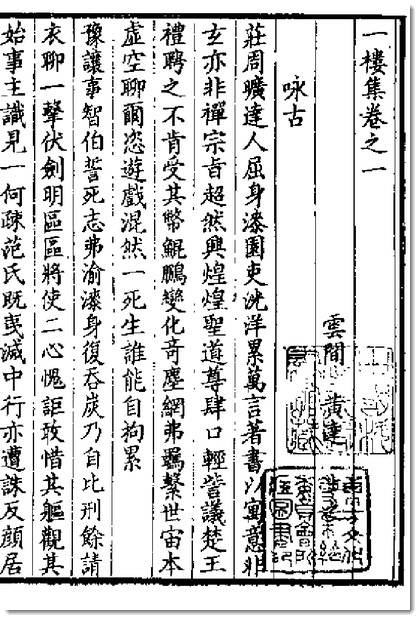 一樓集卷之一
雲間　黃達
咏古
莊周曠達人屈身漆園吏洸洋累萬言著書以寓意非
玄亦非禪宗旨超然異煌煌聖道尊肆口輕訾議楚王
禮聘之不肯受其幣鯤鵬變化奇塵網弗羈繫世宙本
虛空聊爾恣遊戲混然一死生誰能自拘累
豫讓事智伯誓死志弗渝漆身復吞炭乃自比刑餘請
衣聊一擊伏劍明區區將使二心愧詎敢惜其軀觀其
始事主識見一何疎范氏既夷滅中行亦遭誅反顏居